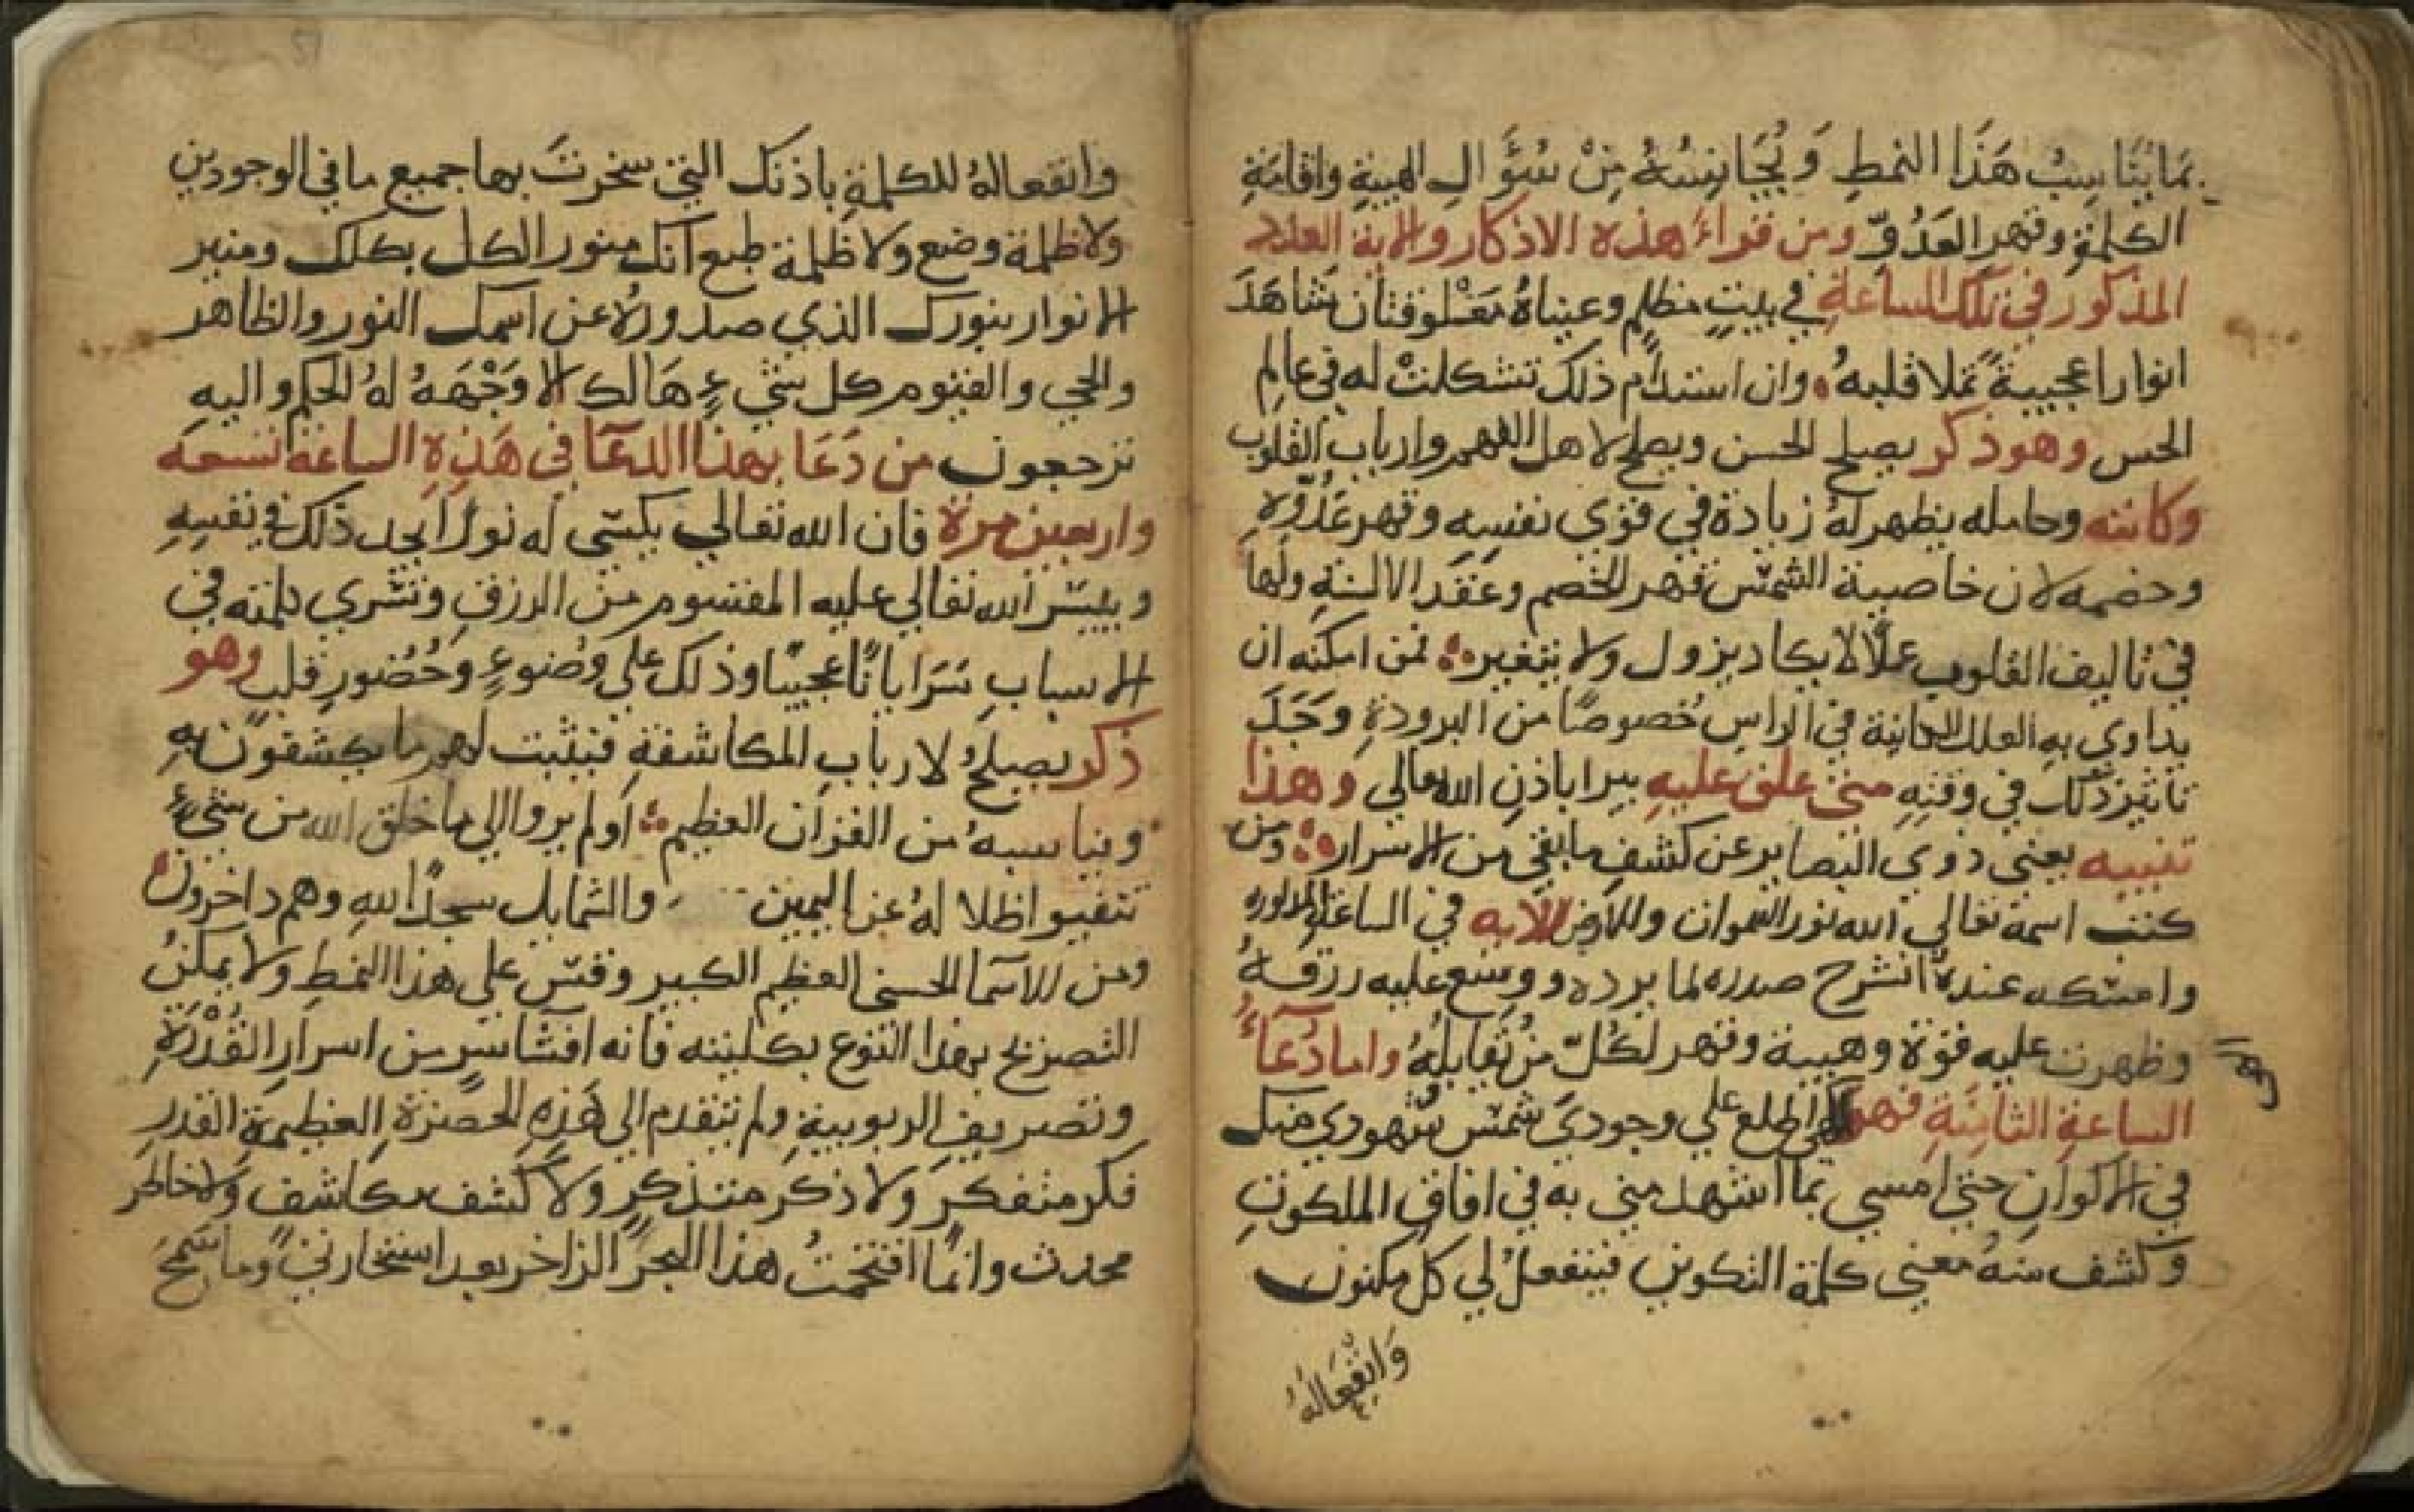 بما يناسب هَذا النمطِ وَيُجَانِسُهُ مِنْ سُؤَالِ الهيبةِ واقامَةِ
الكلمة وقهر العَدُوِّ ومن قراءَ هذه الاذكار والاية العدد
المذكور في تلك الساعةِ في بيتٍ مظلمٍ وعيناهُ مَغْلوقتان شاهَدَ
انوارا عجيبةً تملا قلبهُ وان استدام ذلك تشكلتْ له في عالم
الحس وهو ذكر يصلح الحسن ويصلح لاهل الفهم وارباب القلوب
وكاتبه وحامله يظهر لهُ زيادة في قوى نفسِه وقهر عَدُوّه
وخصمه لان خاصية الشمس قهر الخصم وعَقد الالسنةِ ولها
في تاليف القلوب عملًا لا يكاد يزول ولا يتغير فمن امكنه ان
يداوي بهِ العلل في الراس خُصوصًا من البرودةِ وَجَدَ
تاثير ذلك في وقتِهِ متى علق عليهِ يبرا باذنِ الله تعالي وهذا
تنبيه يعني ذوي البصاير عن كشف ما بقي من الاسرار ومن
كتب اسمه تعالي الله نور السموات والارض الآيه في الساعة المذكوره
وامسكه عندهُ انشرح صدره لما يرده ووسع عليه رزقهُ
وظهرت عليه قوة وهيبة وقهر لكُلّ مَنْ يُقابلهُ واما دُعآءُ
الساعةِ الثانيَةِ فهو الهي اطلع علي وجودي شمس شهودي منك
في الاكوان حتي امسي بما اشهد مني به في افاق الملكوتِ
وكشف منهُ معني كلمة التكوين فينفعلُ لي كل مكنون
وَانفِعَالهُ
وانفعالهُ للكلمةِ باذنك التي سخرتَ بها جميع ما في الوجودين
ولا ظلمة وضع ولا ظلمة طبع انك منور الكل بكلك ومنير
الانوار بنورك الذي صدوره عن اسمك النور والظاهر
والحي والقيوم كل شيءٍ هَالك الا وَجْهَهُ لهُ الحكم واليهِ
ترجعون من دَعَا بهذا الدعآ في هَذِهِ الساعة تسعه
واربعين مرة فان الله تعالي يكسي له نورًا يجد ذلك في نفسِهِ
وييسّر الله تعالي عليه المقسوم من الرزقِ وتسري كلمته في
الاسبابِ سَرَايانًا عجيبًا وذلك علي وضوءٍ وحُضُورِ قلبٍ وهو
ذكر يصلحُ لارباب المكاشفةِ فيثبت لهم ما يكشفون بهِ
ويناسبهُ من القرآن العظيم اولم يروا الي ما خلق الله من شيءٍ
تتفيوا ظلالهُ عن اليمين والشمايل سجدًا للهِ وهم داخرون
ومن الاسمآ الحسني العظيم الكبير وقس علي هذا النمطِ ولا يمكنُ
التصريح بهذا النوع بكليته فانه افشا سرٍ من اسرار القُدْرَةِ
وتصريف الربوبيةِ ولم يتقدم الي هَذِهِ الحضرة العظيمة القدر
فكر متفكرٍ ولا ذكر متذكرٍ ولا كشف مكاشف ولا خاطر
محدث وانمّا افتتحتُ هذا البحر الزاخر بعد استخارتي وما سَمَحَ